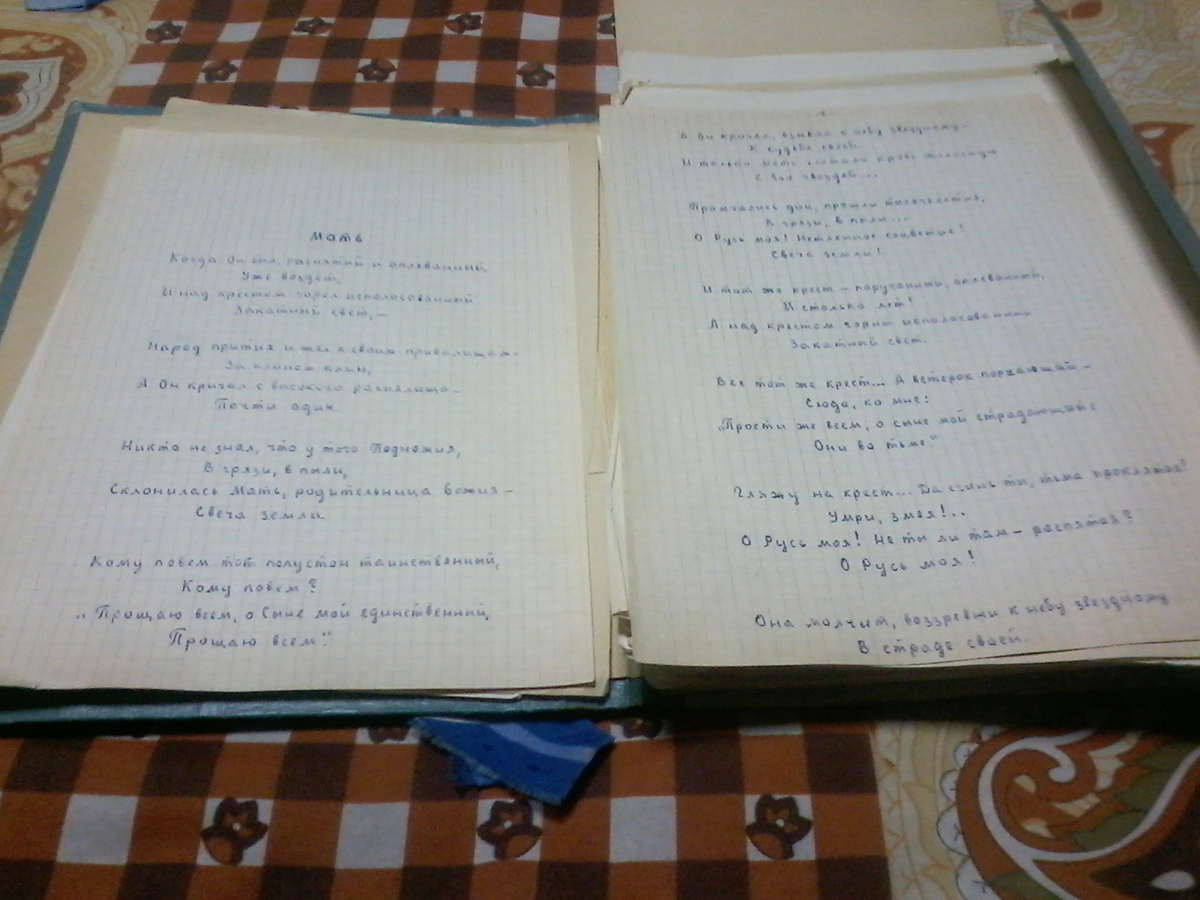 Мать
Когда Он был, распятый и оплеванный,
Уже воздет,
И над крестом горел исполосованный
Закатный свет, –
Народ притих и шел к своим привалищам –
За клином клин,
А Он кричал с высокого распялища –
Почти один.
Никто не знал, что у того Подножия,
В грязи, в пыли,
Склонилась Мать, родительница Божия –
Свеча земли.
Кому повем тот полустон таинственный,
Кому повем?
„Прощаю всем, о Сыне мой единственный,
Прощаю всем".
А Он кричал, взывая к небу звездному –
К судьбе своей
И только Мать глотала кровь железную
С Его гвоздей...
Промчались дни, прошли тысячелетия,
В грязи, в пыли...
О Русь моя! Нетленное соцветие!
Свеча земли!
И тот же крест – поруганный, оплеванный,
И столько лет!
А над крестом горит исполосованный
Закатный свет.
Все тот же крест... А ветерок порхающий –
Сюда, ко мне:
„Прости же всем, о Сыне мой страдающий:
Они во тьме"
Гляжу на крест... Да сгинь ты, тьма проклятая!
Умри, змея!..
О Русь моя! Не ты ли там – распятая?
О Русь моя!
Она молчит, воззревши к небу звездному
В страде своей.